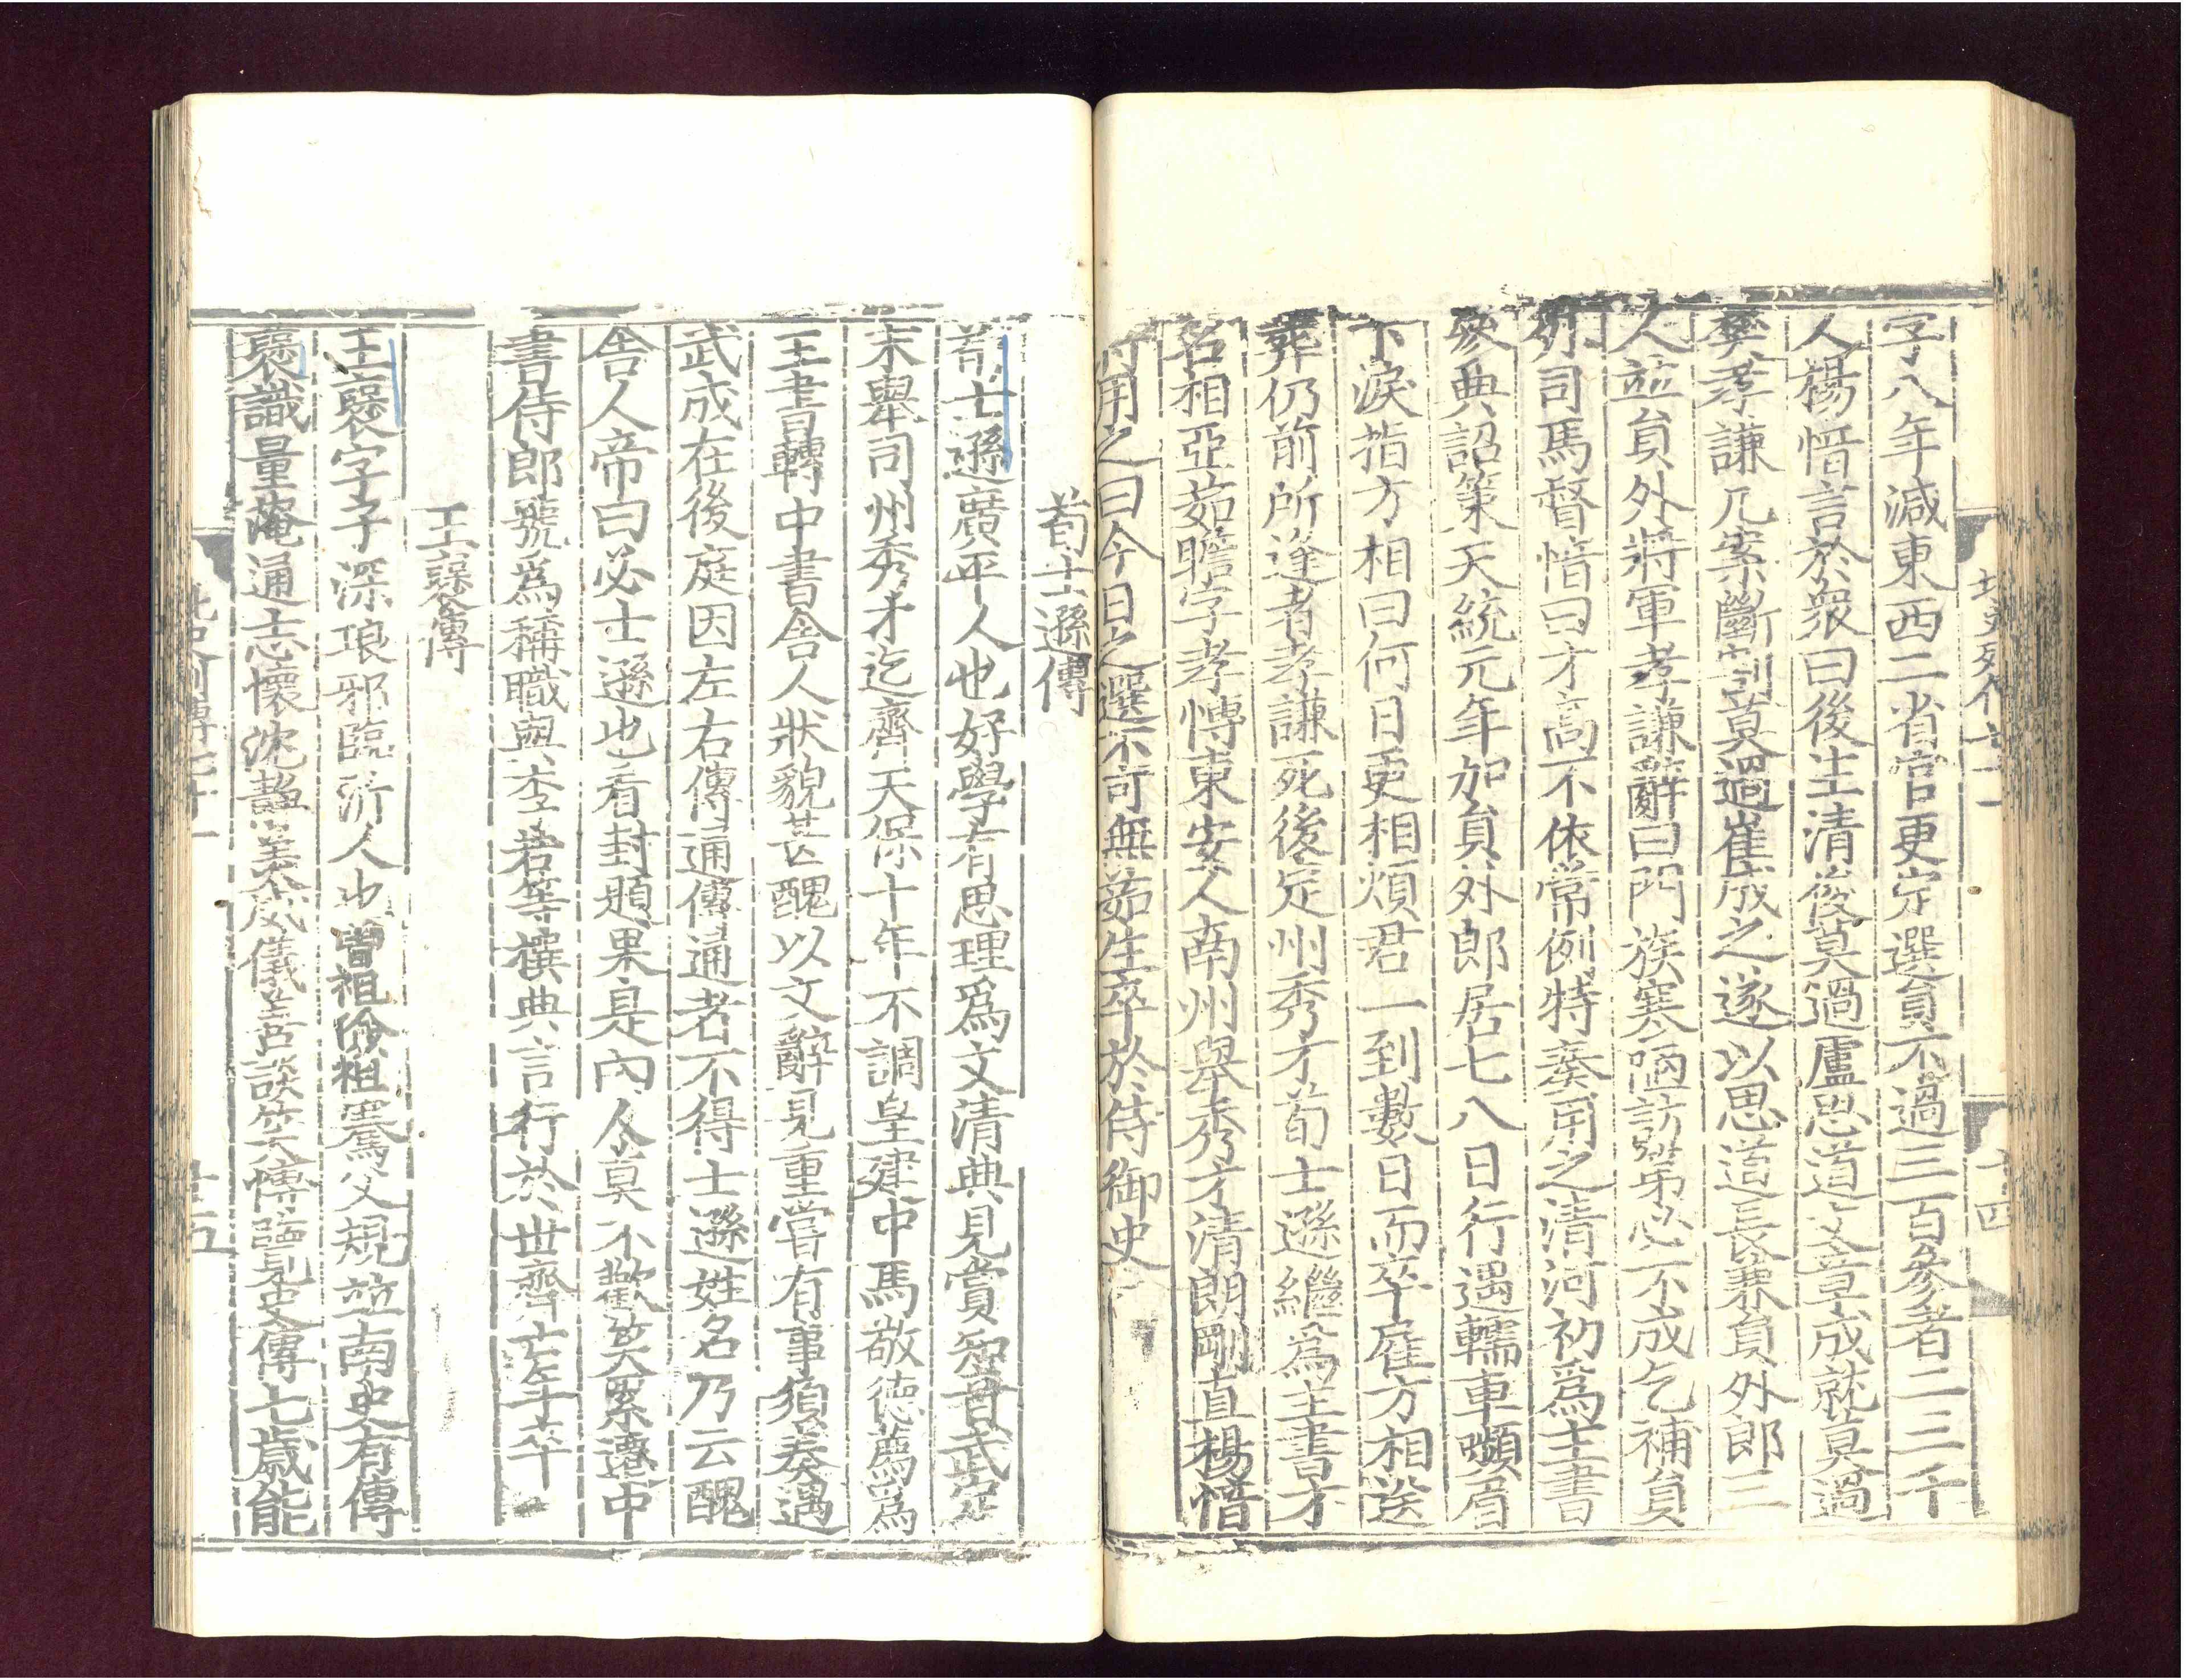 北史列傳七十一 十四
字八年減東西二省官更定選員不過三百參者二三千
人楊愔言於衆曰後生清俊莫過盧思道文章成就莫過
樊孝謙几案斷割莫過崔成之遂以思道長兼員外郎三
人並員外將軍孝謙辭曰門族寒陋訪第必不成乞補員
外司馬督愔曰才高不依常例特奏用之清河初爲主書
參典詔策天統元年加員外郎居七八日行遇轜車嚬眉
下淚指方相曰何日更相煩君一到數日而卒雇方相送
葬仍前所逢者孝謙死後定州秀才荀士遜繼爲主書才
名相亞茹瞻字孝博東安人南州舉秀才清朗剛直楊愔
將用之曰今日之選不可無茹生卒於侍御史
荀士遜傳
荀士遜廣平人也好學有思理爲文清典見賞知音武定
末舉司州秀才迄齊天保十年不調皇建中馬敬德薦爲
主書轉中書舍人狀貌甚醜以文辭見重嘗有事須奏遇
武成在後庭因左右傳通傳通者不得士遜姓名乃云醜
舍人帝曰必士遜也看封題果是內人莫不歡笑累遷中
書侍郎號爲稱職與李若等撰典言行於世齊亡年卒
王褒傳
王褒字子深琅邪臨沂人也曾祖儉祖騫父規並南史有傳
褒識量淹通志懷沈靜美威儀善談笑博覽史傳七歲能
北史列傳七十一 十五